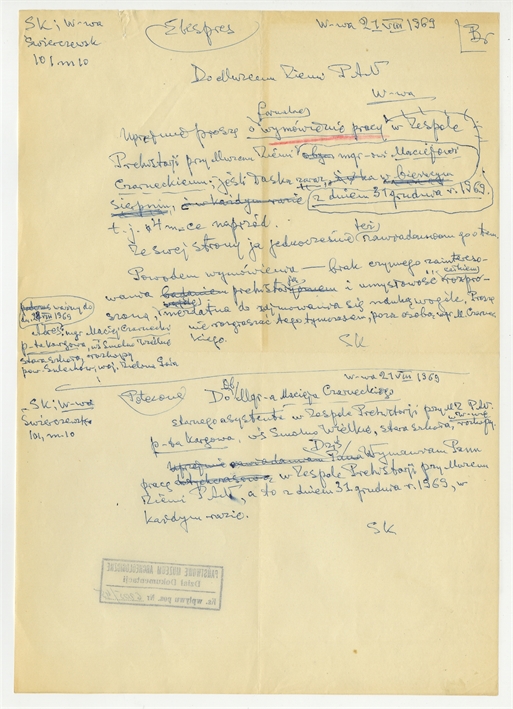 SK; W-wa
Świerczewsk
101 m 10
Ekspres
W-wa 21 VIII 1969
Br
Do Muzeum Ziemi PAN
W-wa
Uprzejmie proszę o wymówienie pracy w Zespole
Prehistorji przy Muzeum Ziemi mgr-owi Maciejowi
Czarneckiemu - jeśli łaska zaraz,
sierpnia, i w każdym razie z dniem 31 grudnia r. 1969.
t. j. 4 m-ce naprzód.
Ze swej strony ja jednocześnie też zawiadamiam go o tem.
Powodem wymówienia — brak czynnego zaintereso-
wania prehistorją i umysłowość rozpro-
szona, do zajmowania się nauką wogóle. Proszę
nie rozgłaszać tego tymczasem, poza osobą mgr. M. Czarnec-
kiego.
SK
Adres: mgr. Maciej Czarnecki
p-ta Kargowa, wś Smolno Wielkie
stara szkoła,
pow. Sulechów, woj. Zielona Góra
W-wa 21 VIII 1969
SK; W-wa
Świerczewsk
101, m. 10
Polecone
Do Mgr-a Macieja Czarneckiego
starszego asystenta w Zespole Prehistorji przy M. Z. PAN w W-wie
p-ta Kargowa, wś Smolno Wielkie, stara szkoła,
Dziś Wymawiam Panu
pracę w Zespole Prehistorji przy Muzeum
Ziemi PAN, a to z dniem 31 grudnia r. 1969, w
każdym razie.
SK
PAŃSTWOWE MUZEUM ARCHEOLOGICZNE
Dział Dokumentacji
Nr. wpływu poz. Nr